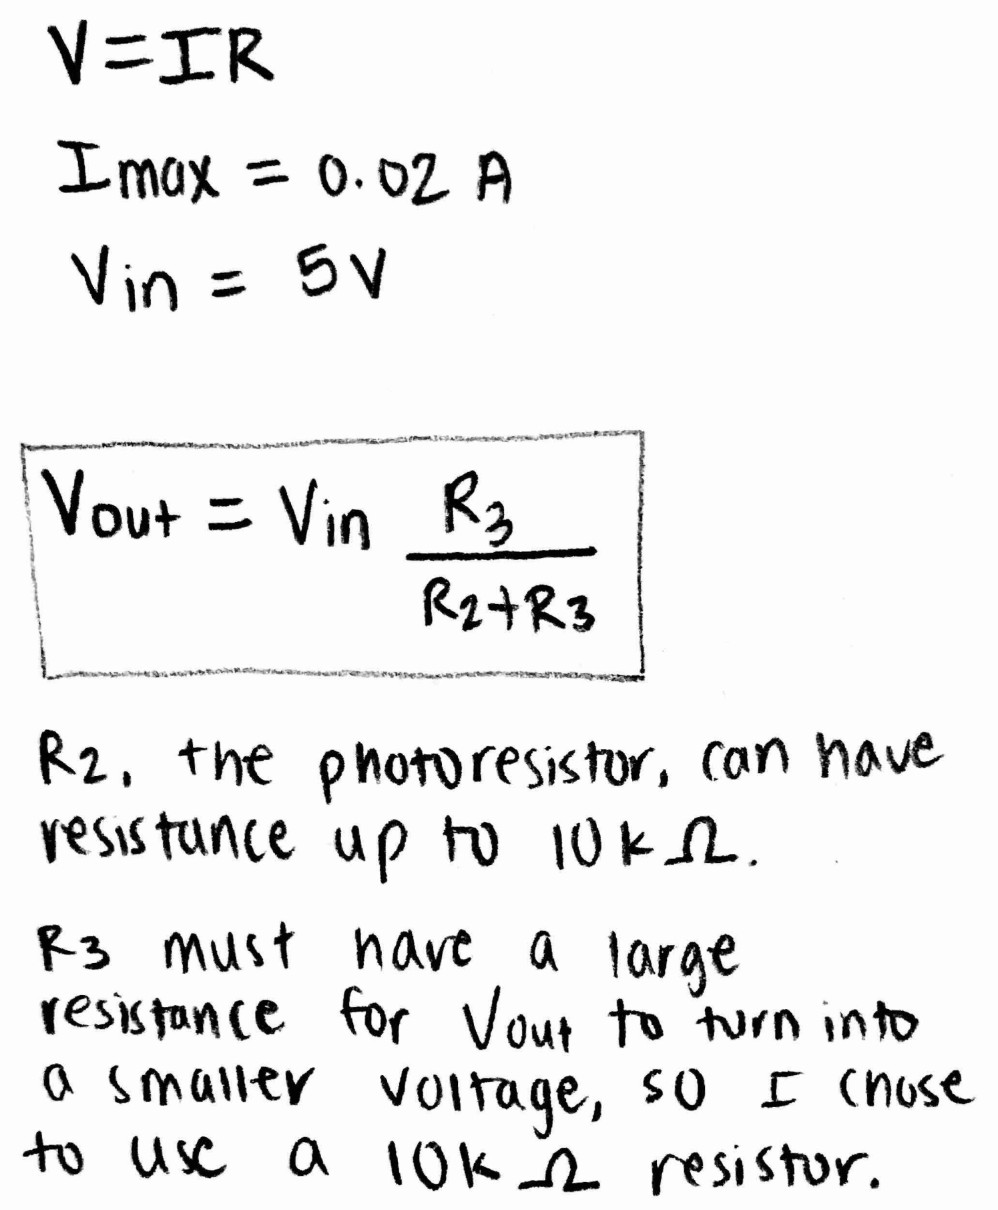 V=IR
Imax = 0.02 A
Vin = 5V
Vout = Vin R3
R2+R3
R2, the photoresistor, can have
resistance up to 10kΩ.
R3 must have a large
resistance for Vout to turn into
a smaller voltage, so I chose
to use a 10kΩ resistor.